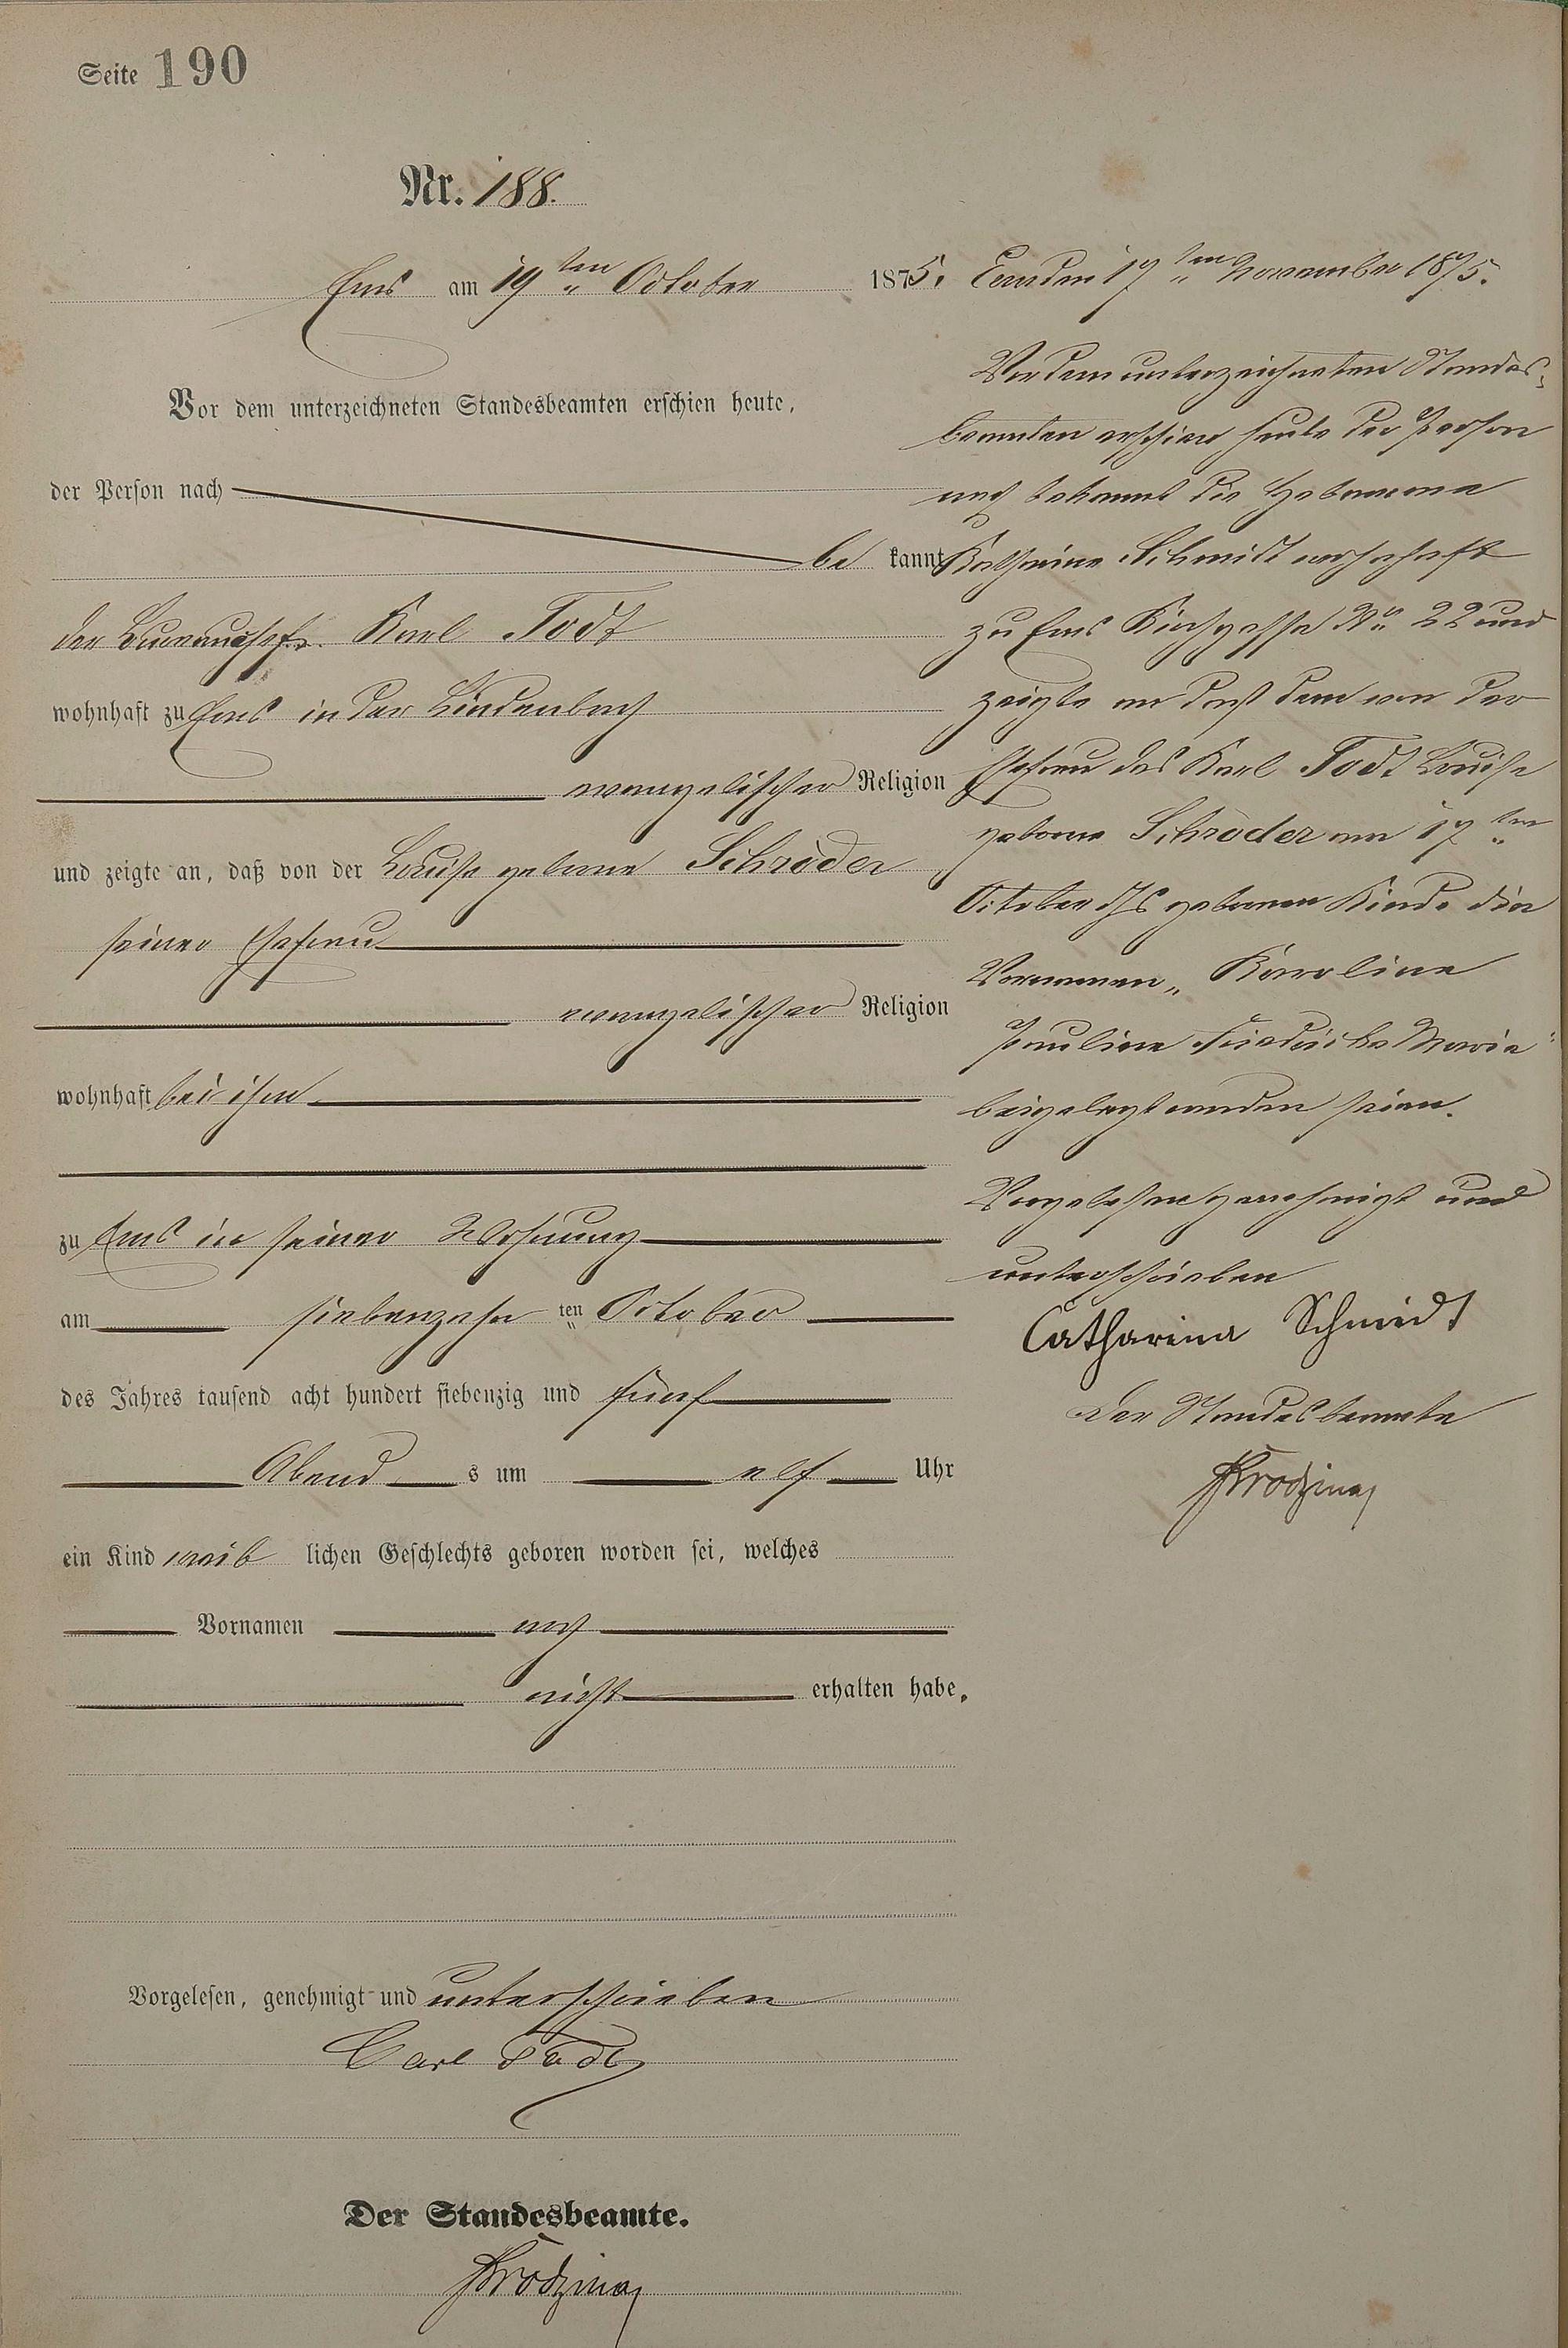 Seite 190
Nr. 188.
Ems am 19ten October 1875.
Vor dem unterzeichneten Standesbeamten erschien heute,
der Person nach
be kannt
der Karl Todt
wohnhaft zu Ems in der Lindenbach
evangelischer Religion
und zeigte an, daß von der Louise geborne Schröder
seiner Ehefrau
evangelischer Religion
wohnhaft bei ihm
zu Ems in seiner Wohnung
am siebenzehn ten October
des Jahres tausend acht hundert siebenzig und fünf
Abend s um elf Uhr
ein Kind weib lichen Geschlechts geboren worden sei, welches
Vornamen noch
nicht erhalten habe.
Vorgelesen, genehmigt und unterschrieben
Carl Todt
Der Standesbeamte.
Ems den 17ten November 1875.
Vor dem unterzeichneten Standes-
beamten erschien heute der Person
nach bekannt die Hebamme
Katharine Schmidt wohnhaft
zu Ems Kirchgasse No 22 und
zeigte an daß dem von der
Ehefrau des Karl Todt Louise
geborne Schröder am 17ten
October d Js gebornen Kinde die
Vornamen „Karoline
Pauline Friedericke Marie"
beigelegt worden seien.
Vorgelesen genehmigt und
unterschrieben
Catharina Schmidt
Der Standesbeamte